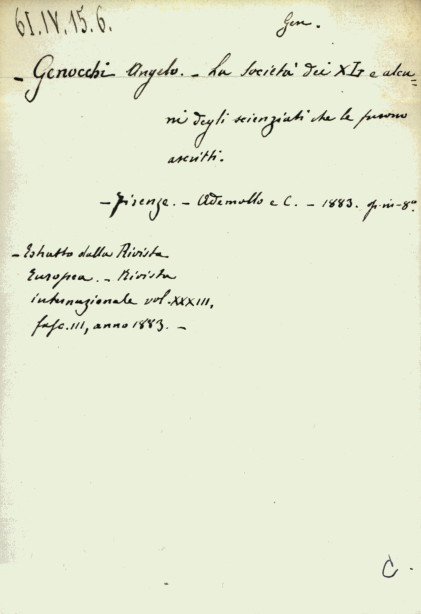 61.IV.15.6.
Gen.
- Genocchi Angelo. - La società dei XL e alcu=
ni degli scienziati che le furono
ascritti.
- Firenze. - Ademollo e C. - 1883. in-8°
- Estratto dalla Rivista
Europea. - Rivista
internazionale vol. XXXIII,
fasc. III, anno 1883. -
C.